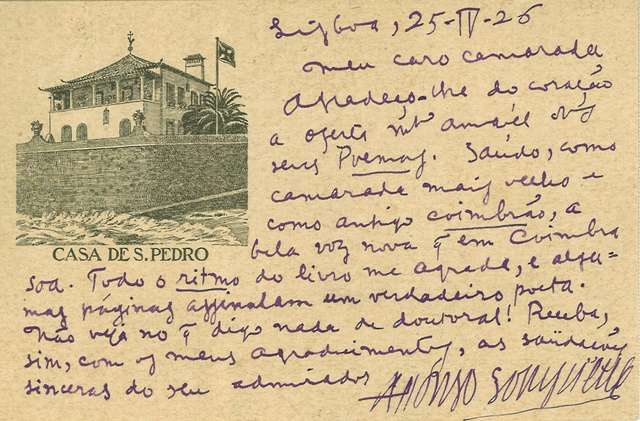 Lisboa, 25-II-26
Meu caro camarada
Agradeço-lhe do coração
a oferta mto amável dos
seus Poemas. Saúdo, como
camarada mais velho e
como antigo coimbrão, a
bela voz nova q̃ em Coimbra
soa. Todo o ritmo do livro me agrada, e algu-
mas páginas assinalam um verdadeiro poeta.
Não veja no q̃ digo nada de doutoral! Receba,
sim, com os meus agradecimentos, as saüdações
sinceras do seu admirador
Affonso
CASA DE S. PEDRO